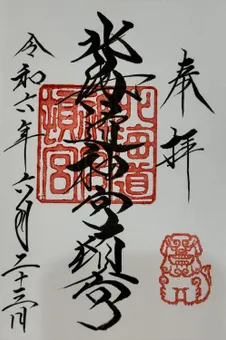 奉拝
北海道神宮頓宮
北海道神宮頓宮
令和六年六月二十三日